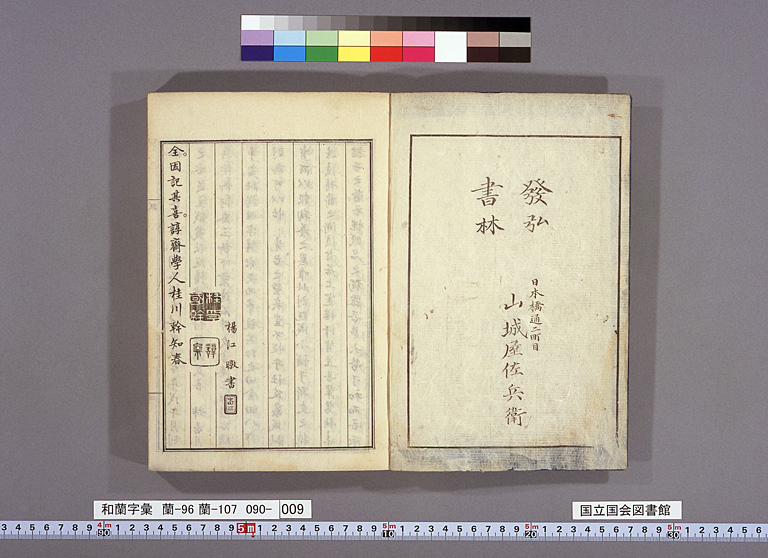 發弘
書林
日本橋通二町目
山城屋佐兵衛
全。因記其喜。諄齋學人桂川幹知春
楊江 書
和蘭字彙 蘭-96 蘭-107 090- 009
国立国会図書館